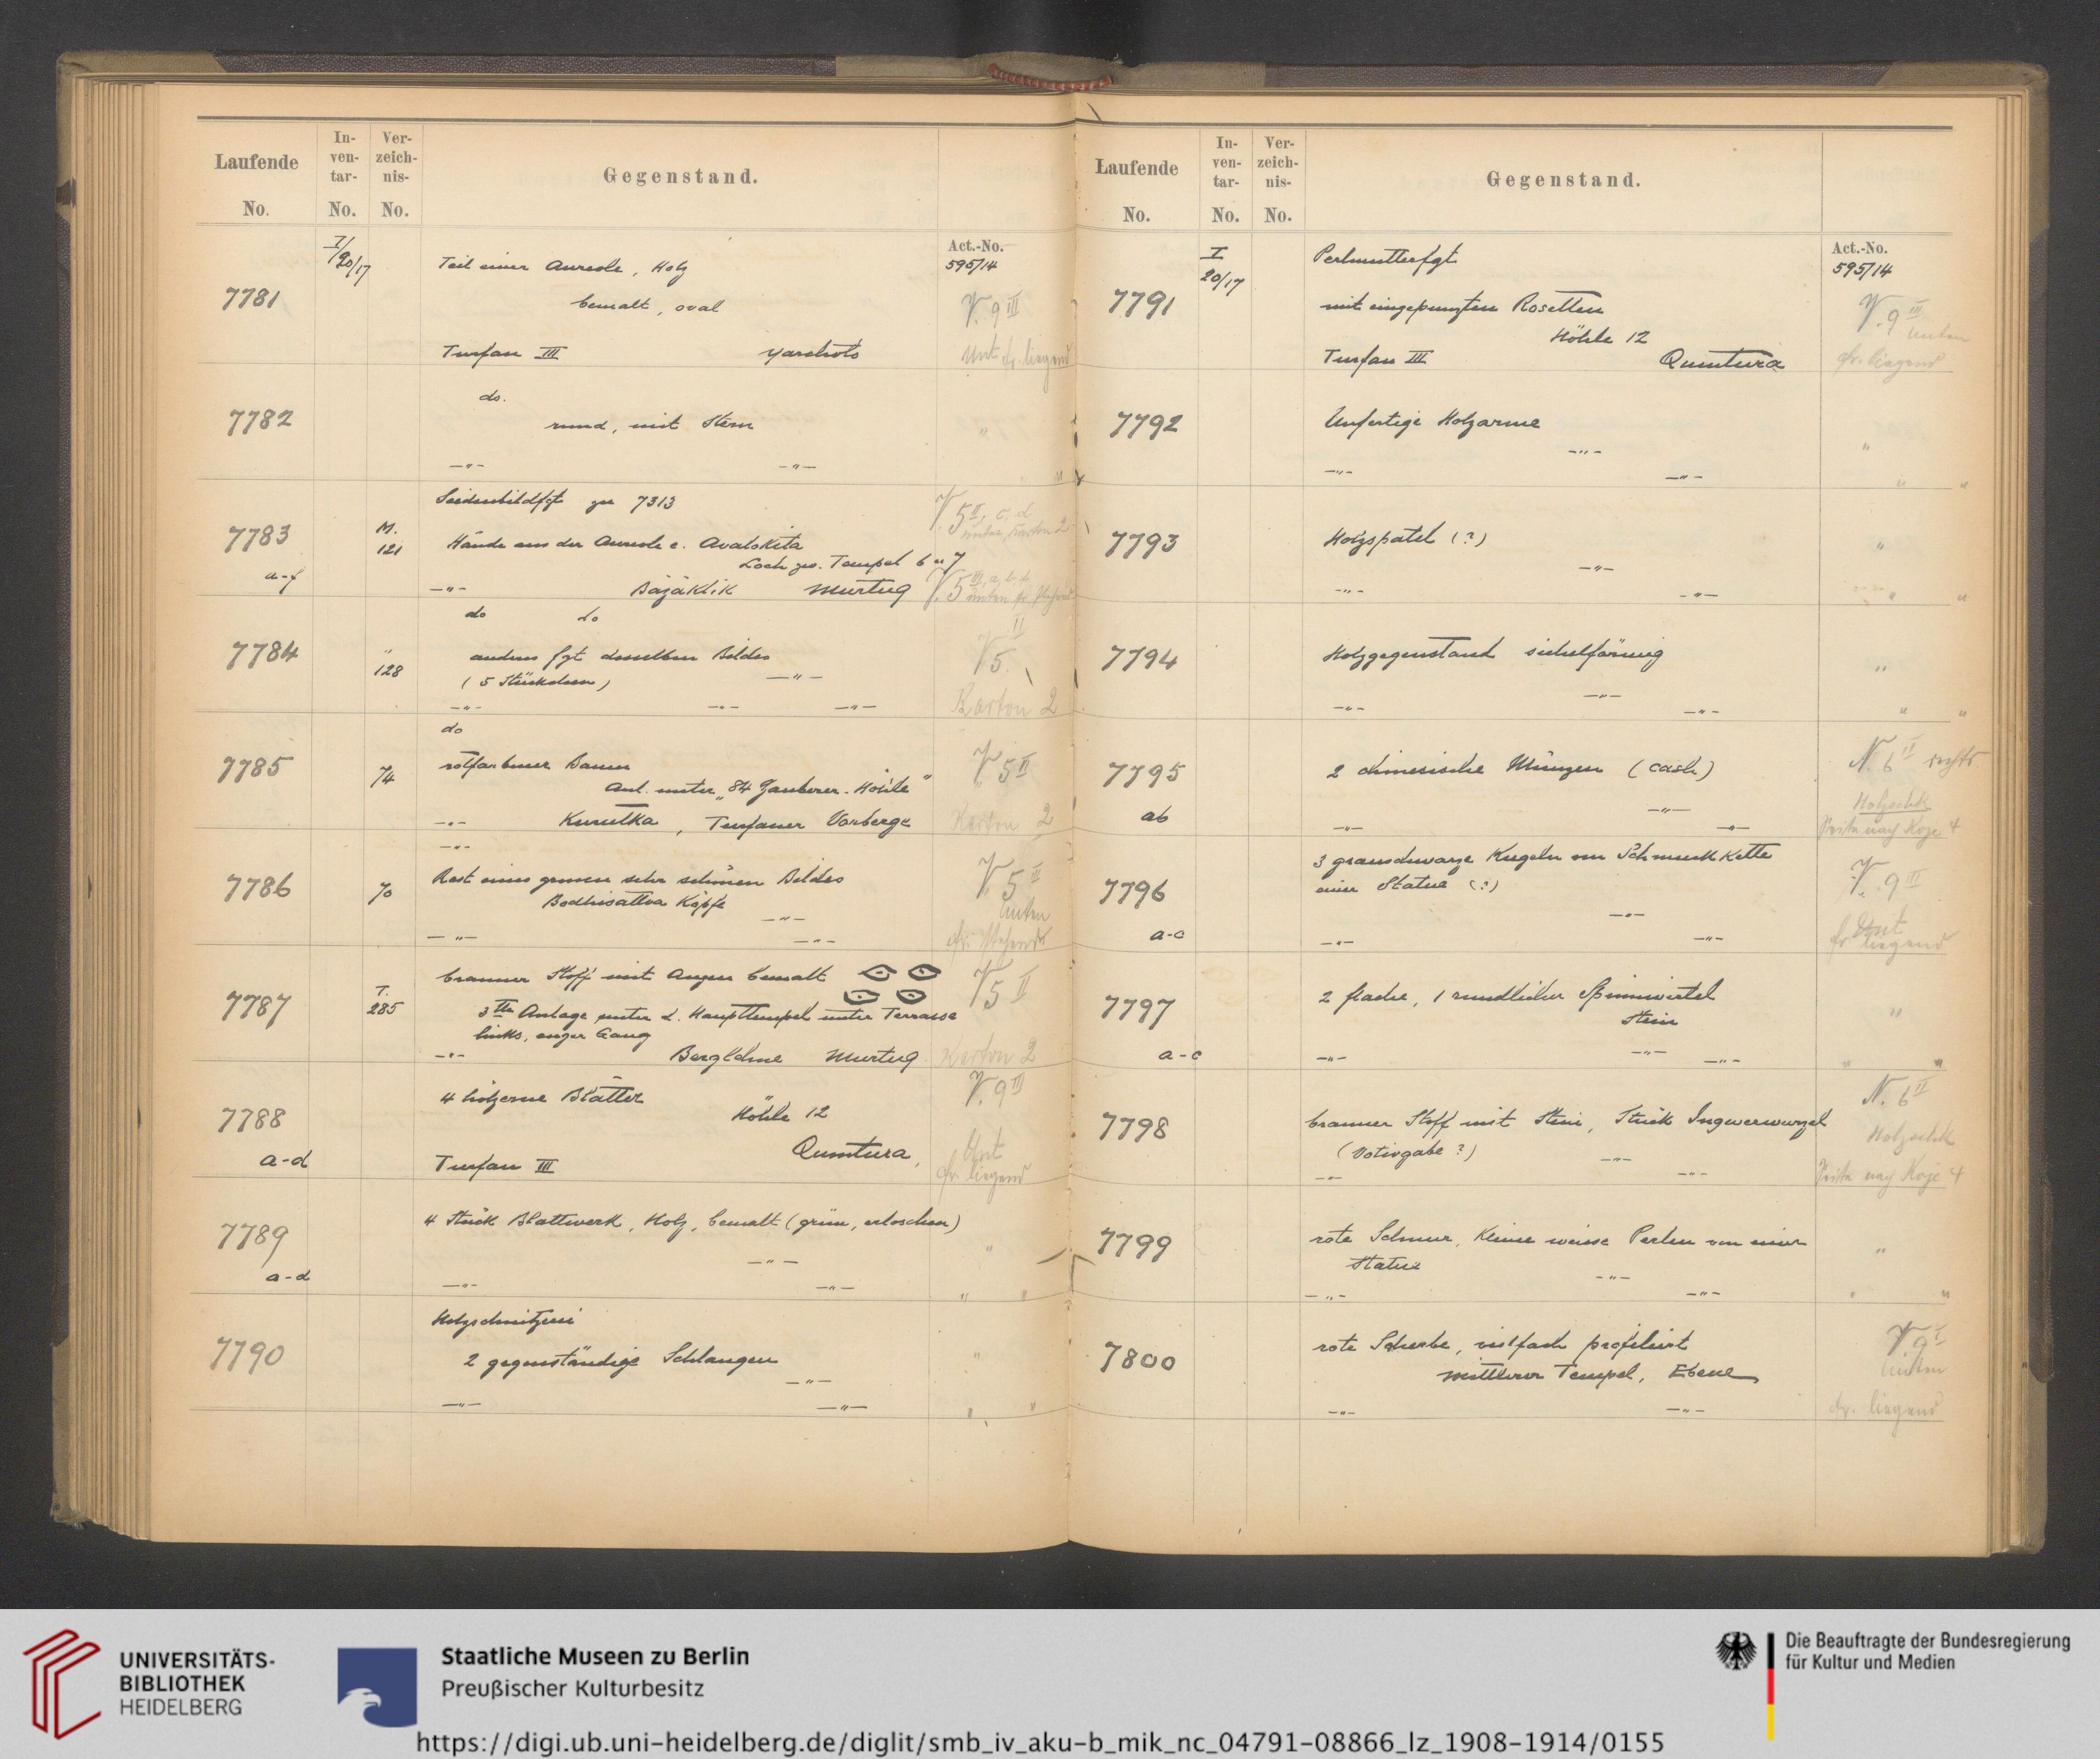 Laufende No.
In-ven-tar- No.
Ver-zeich-nis- No.
Gegenstand.
7781
I/20/17
Teil einer Aureole, Holz
bemalt, oval
Turfan III Yarchoto
Act.-No.
595/14
V. 9 III
Unt. fr. liegend
7782
do.
rund, mit Stern
—"— —"—
"
" "
7783
a-f
M.
121
Seidenbildfgt zu 7313
Hände aus der Aureole e. Avalokita
Loch zw. Tempel 6 u 7
—"— Bäzäklik Murtuq
V. 5 II, c, d
unten, Karton 2
V. 5 III, a, b, f
unten fr. stehend
7784
"
128
do do
anderes fgt desselben Bildes
(5 Stückchen) —"—
—"— —"— —"—
V 5. II
Karton 2
7785
74
do
rotfarbener Baum
Anl. unter „84 Zauberer-Höhle"
—"— Kurutka, Turfaner Vorberge
V 5 II
Karton 2
7786
70
—"—
Rest eines grossen sehr schönen Bildes
Bodhisattva Köpfe
—"—
—"— —"—
V. 5 II
unten
fr. stehend
7787
T.
285
brauner Stoff mit Augen bemalt
3te Anlage unter d. Haupttempel unter Terrasse
links, enger Gang
—"— Berglehne Murtuq
V 5 II
Karton 2
7788
a-d
4 hölzerne Blätter
Höhle 12
Turfan III Qumtura,
V. 9 III
Unt
fr. liegend
7789
a-d
4 Stück Blattwerk, Holz, bemalt (grün, erloschen)
—"—
—"— —"—
"
" "
7790
Holzschnitzerei
2 gegenständige Schlangen
—"—
—"— —"—
"
" "
Laufende No.
In-ven-tar- No.
Ver-zeich-nis- No.
Gegenstand.
7791
I
20/17
Perlmutterfgt
mit eingepunzten Rosetten
Höhle 12
Turfan III Qumtura
Act.-No.
595/14
V. 9 III
unten
fr. liegend
7792
Unfertige Holzarme
—"—
—"— —"—
"
" "
7793
Holzspatel (?)
—"—
—"— —"—
"
" "
7794
Holzgegenstand sichelförmig
—"—
—"— —"—
"
" "
7795
ab
2 chinesische Münzen (cash)
—"—
—"— —"—
N. 6 II rechts
Koje 4
7796
a-c
3 grauschwarze Kugeln von Schmuckkette
einer Statue (?)
—"—
—"— —"—
V. 9 III
Unt
fr. liegend
7797
a-c
2 flache, 1 rundlicher Spinnwirtel
Stein
—"—
—"— —"—
"
" "
7798
brauner Stoff mit Stein, Stück Ingwerwurzel
(Votivgabe?) —"—
—"— —"—
N. 6 II
Koje 4
7799
rote Schnur, kleine weisse Perlen von einer
Statue
—"—
—"— —"—
"
" "
7800
rote Scherbe, vielfach profiliert
mittlerer Tempel, Ebene
—"— —"—
unten
fr. liegend
UNIVERSITÄTS-
BIBLIOTHEK
HEIDELBERG
Staatliche Museen zu Berlin
Preußischer Kulturbesitz
Die Beauftragte der Bundesregierung
für Kultur und Medien
https://digi.ub.uni-heidelberg.de/diglit/smb_iv_aku-b_mik_nc_04791-08866_lz_1908-1914/0155